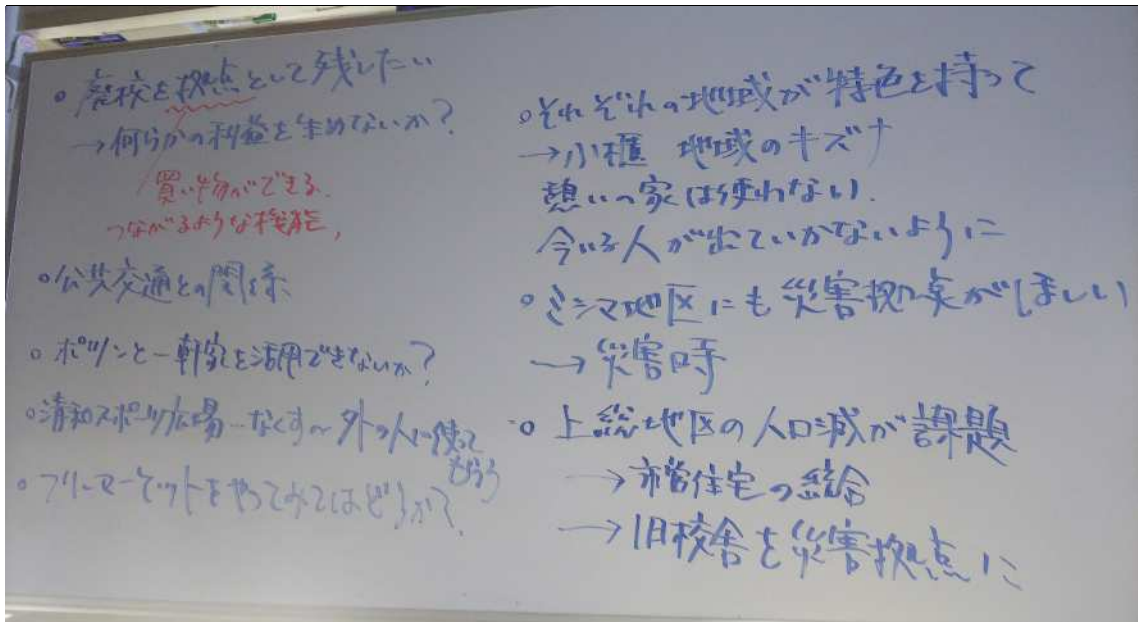 ○廃校を拠点として残したい
→何らかの利益を生めないか?
買い物ができる、
つながるような機能、
○公共交通との関係
○ポツンと一軒家を活用できないか?
○清和スポーツ広場…なくす〜外の人に使って
もらう
○フリーマーケットをやってみてはどうか?
○それぞれの地域が特色を持って
→小櫃 地域のキズナ
憩いの家は使わない.
今いる人が出ていかないように
○ミシマ地区にも災害拠点がほしい
→災害時
○上総地区の人口減が課題
→市営住宅の統合
→旧校舎を災害拠点に